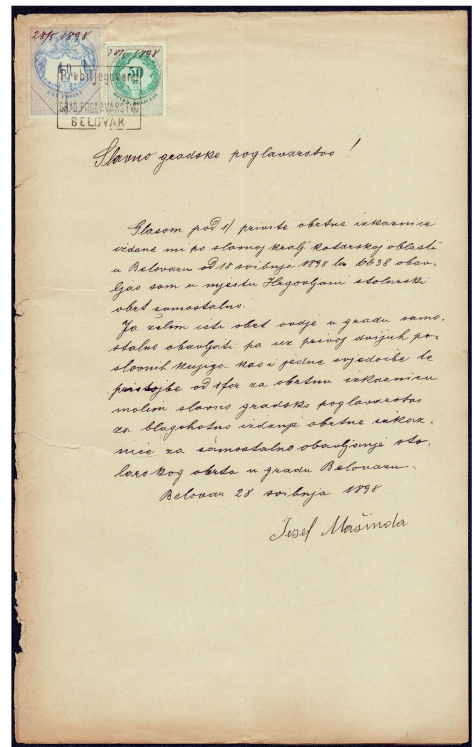 28/5 1898
28/5 1898
50
Prebilježovano
GRAD. POGLAVARSTVO
BELOVAR
Slavno gradsko poglavarstvo!
Glasom pod 1/ privite obrtne izkaznice
izdane mi po slavnoj kralj kotarskoj oblasti
u Belovaru od 18 svibnja 1898 br 6638 obav-
ljao sam u mjestu stolarski
obrt samostalno.
Ja želim isti obrt ovdje u gradu samo-
stalno obavljati pa uz privoj dvijuh po-
slovnih knjiga kao i jedne svjedočbe te
pristojbe od 1 for za obrtnu izkaznicu
molim slavno gradsko poglavarstvo
za blagohotno izdanje obrtne izkaz-
nice za samostalno obavljanje sto-
larskog obrta u gradu Belovaru.
Belovar 28 svibnja 1898
Josef Mašinda